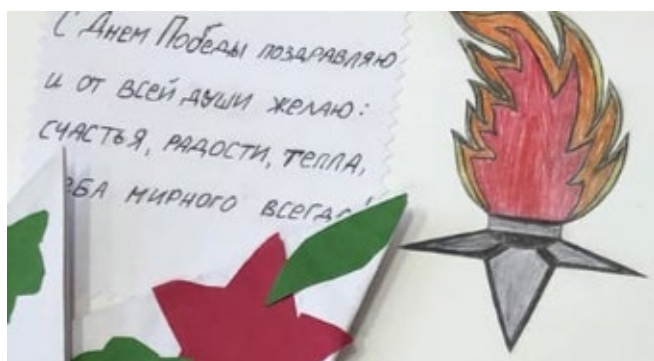 С Днем Победы поздравляю
и от всей души желаю:
счастья, радости, тепла,
мирного всегда!